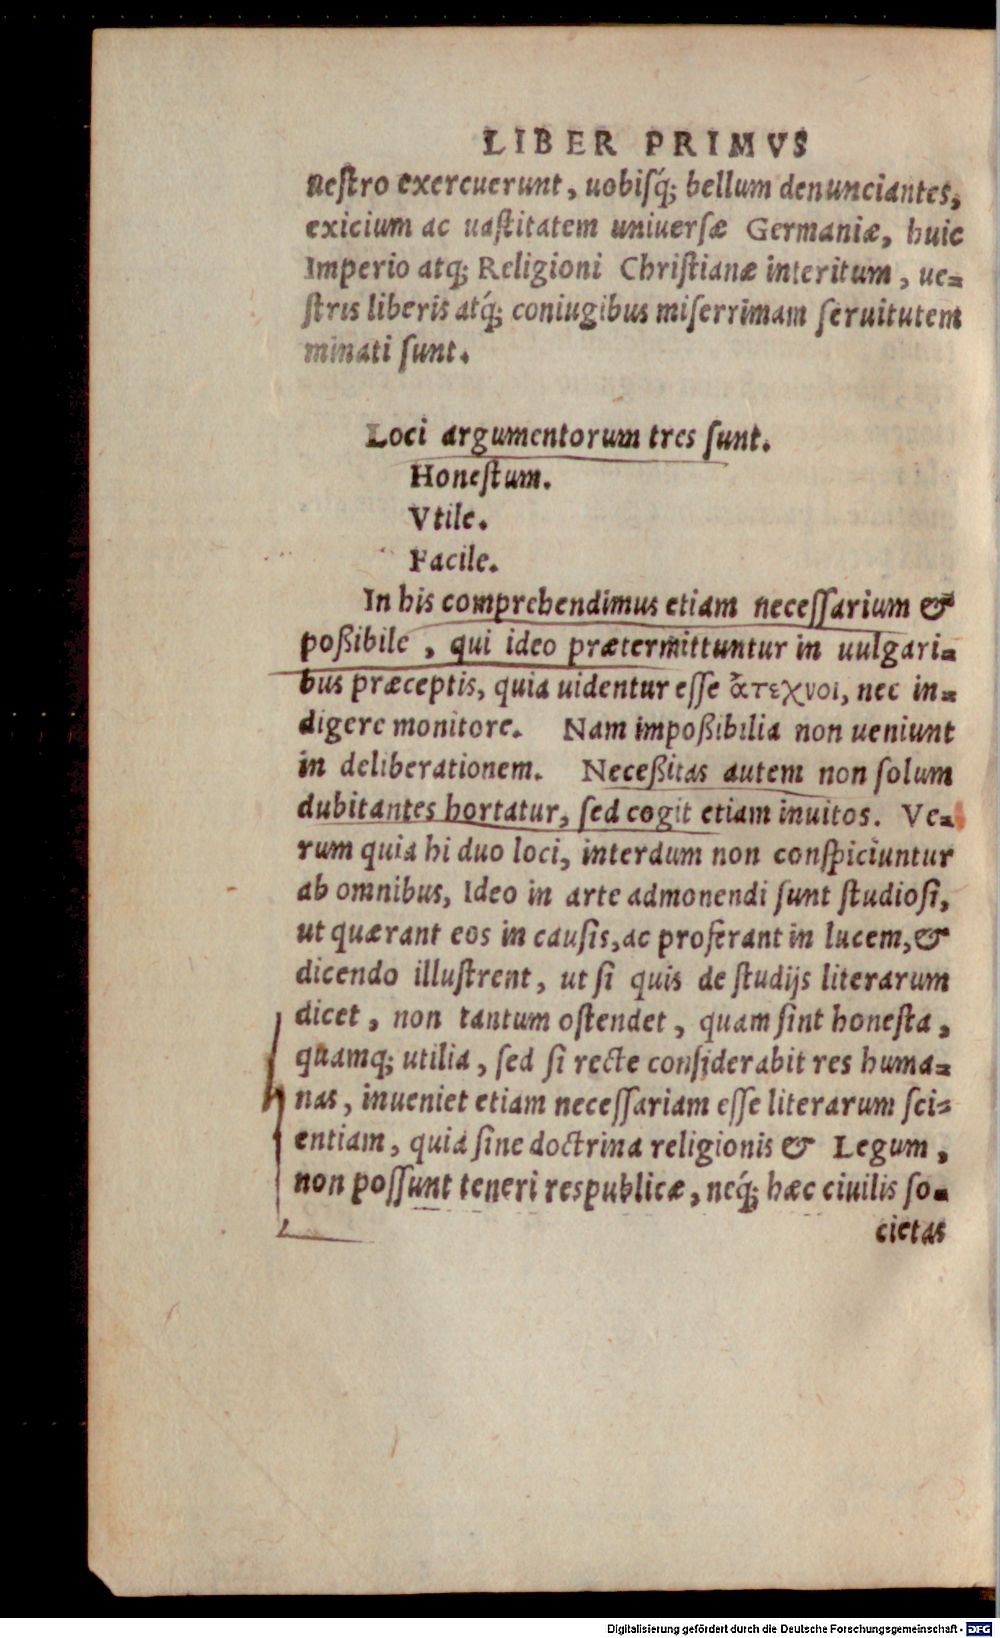 LIBER PRIMVS
neſtro exercuerunt, uobiſq́; bellum denunciantes,
exicium ac uaſtitatem uniuerſæ Germaniæ, huic
Imperio atq; Religioni Chriſtianæ interitum, ue-
ſtris liberis atq́; coniugibus miſerrimam ſeruitutem
minati ſunt.
Loci argumentorum tres ſunt.
Honeſtum.
Vtile.
Facile.
In his comprehendimus etiam neceſſarium &
poßibile, qui ideo prætermittuntur in uulgari-
bus præceptis, quia uidentur eſſe ἄτεχνοι, nec in-
digere monitore. Nam impoßibilia non ueniunt
in deliberationem. Neceßitas autem non ſolum
dubitantes hortatur, ſed cogit etiam inuitos. Ve-
rum quia hi duo loci, interdum non conſpiciuntur
ab omnibus, Ideo in arte admonendi ſunt ſtudioſi,
ut quærant eos in cauſis, ac proferant in lucem, &
dicendo illuſtrent, ut ſi quis de ſtudijs literarum
dicet, non tantum oſtendet, quam ſint honeſta,
quamq; utilia, ſed ſi recte conſiderabit res huma-
nas, inueniet etiam neceſſariam eſſe literarum ſci-
entiam, quia ſine doctrina religionis & Legum,
non poſſunt teneri respublicæ, neq́; hæc ciuilis ſo-
cietas
Digitalisierung gefördert durch die Deutsche Forschungsgemeinschaft - DFG